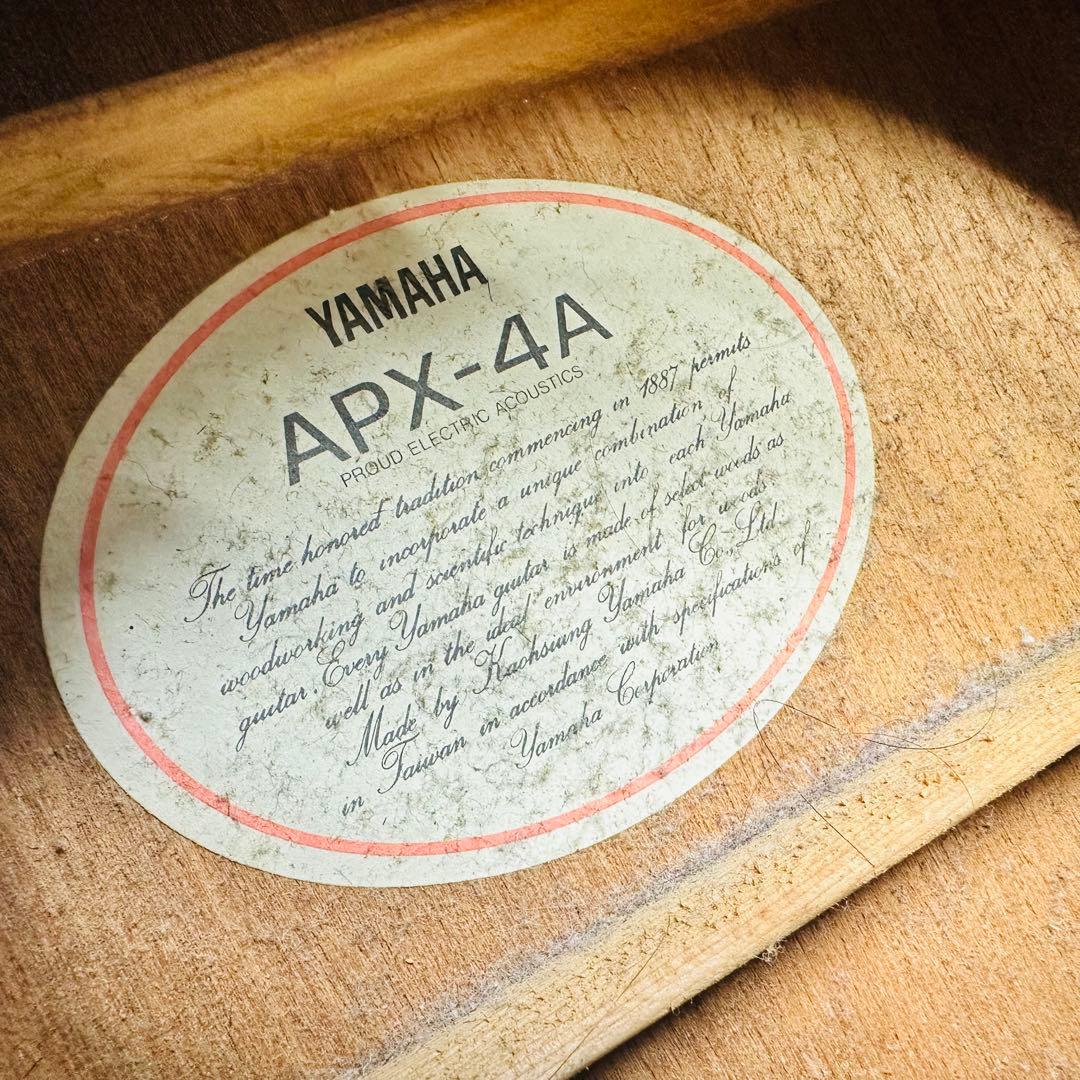 YAMAHA
APX-4A
PROUD ELECTRIC ACOUSTICS
The time honored tradition commencing in 1887 permits
Yamaha to incorporate a unique combination of
woodworking and scientific technique into each Yamaha
guitar. Every Yamaha guitar is made of select woods as
well as in the ideal environment for woods.
Made by Kaohsiung Yamaha Co., Ltd.
in Taiwan in accordance with specifications of
Yamaha Corporation